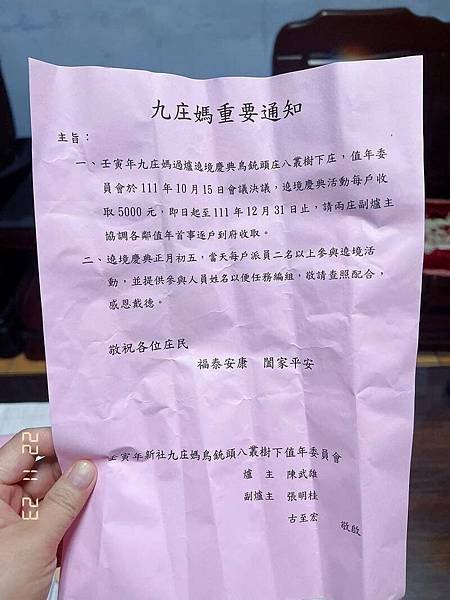 九庄媽重要通知
主旨：
一、壬寅年九庄媽過爐遶境慶典鳥銃頭庄八叢樹下庄，值年委
員會於111年10月15日會議決議，遶境慶典活動每戶收
取5000元，即日起至111年12月31日止，請兩庄副爐主
協調各鄰值年首事逐戶到府收取。
二、遶境慶典正月初五，當天每戶派員二名以上參與遶境活
動，並提供參與人員姓名以便任務編組，敬請查照配合，
感恩戴德。
敬祝各位庄民
福泰安康 闔家平安
壬寅年新社九庄媽鳥銃頭八叢樹下值年委員會
爐 主 陳武雄
副爐主 張明桂
古至宏
敬啟
22 11 23